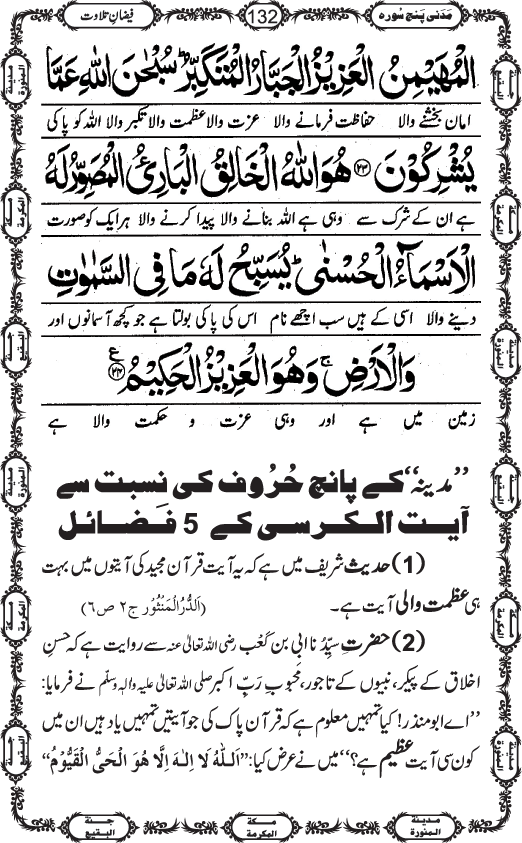 مَدَنی پنج سُورہ
132
فیضانِ تلاوت
الْمُهَيْمِنُ الْعَزِيْزُ الْجَبَّارُ الْمُتَكَبِّرُ ؕ سُبْحٰنَ اللّٰهِ عَمَّا
امان بخشنے والا حفاظت فرمانے والا عزت والا عظمت والا تکبر والا اللہ کو پاکی
يُشْرِكُوْنَ ﴿۲۳﴾ هُوَ اللّٰهُ الْخَالِقُ الْبَارِئُ الْمُصَوِّرُ لَهُ
ہے ان کے شرک سے وہی ہے اللہ بنانے والا پیدا کرنے والا ہر ایک کو صورت
الْاَسْمَآءُ الْحُسْنٰى ؕ يُسَبِّحُ لَهٗ مَا فِى السَّمٰوٰتِ
دینے والا اسی کے ہیں سب اچھے نام اس کی پاکی بولتا ہے جو کچھ آسمانوں اور
وَالْاَرْضِ ۚ وَهُوَ الْعَزِيْزُ الْحَكِيْمُ ﴿۲۴﴾ ع
زمین میں ہے اور وہی عزت و حکمت والا ہے
”مدینہ“ کے پانچ حُرُوف کی نسبت سے
آیت الکرسی کے 5 فَضائل
(1) حدیث شریف میں ہے کہ یہ آیت قرآن مجید کی آیتوں میں بہت
ہی عظمت والی آیت ہے۔ (اَلدُّرُّالْمَنْثُوْر ج۲ ص۶)
(2) حضرتِ سیِّدُنا اُبی بن کَعْب رضی اللہ تعالیٰ عنہ سے روایت ہے کہ حسنِ
اخلاق کے پیکر، نبیوں کے تاجور، محبوبِ ربِّ اکبر صلی اللہ تعالیٰ علیہ واٰلہٖ وسلّم نے فرمایا:
”اے ابو منذر! کیا تمہیں معلوم ہے کہ قرآن پاک کی جو آیتیں تمہیں یاد ہیں ان میں
کون سی آیت عظیم ہے؟“ میں نے عرض کیا: ”اَللّٰهُ لَاۤ اِلٰهَ اِلَّا هُوَ الْحَىُّ الْقَيُّوْمُ“
مدینة المنورة
مكة المكرمة
جنة البقيع